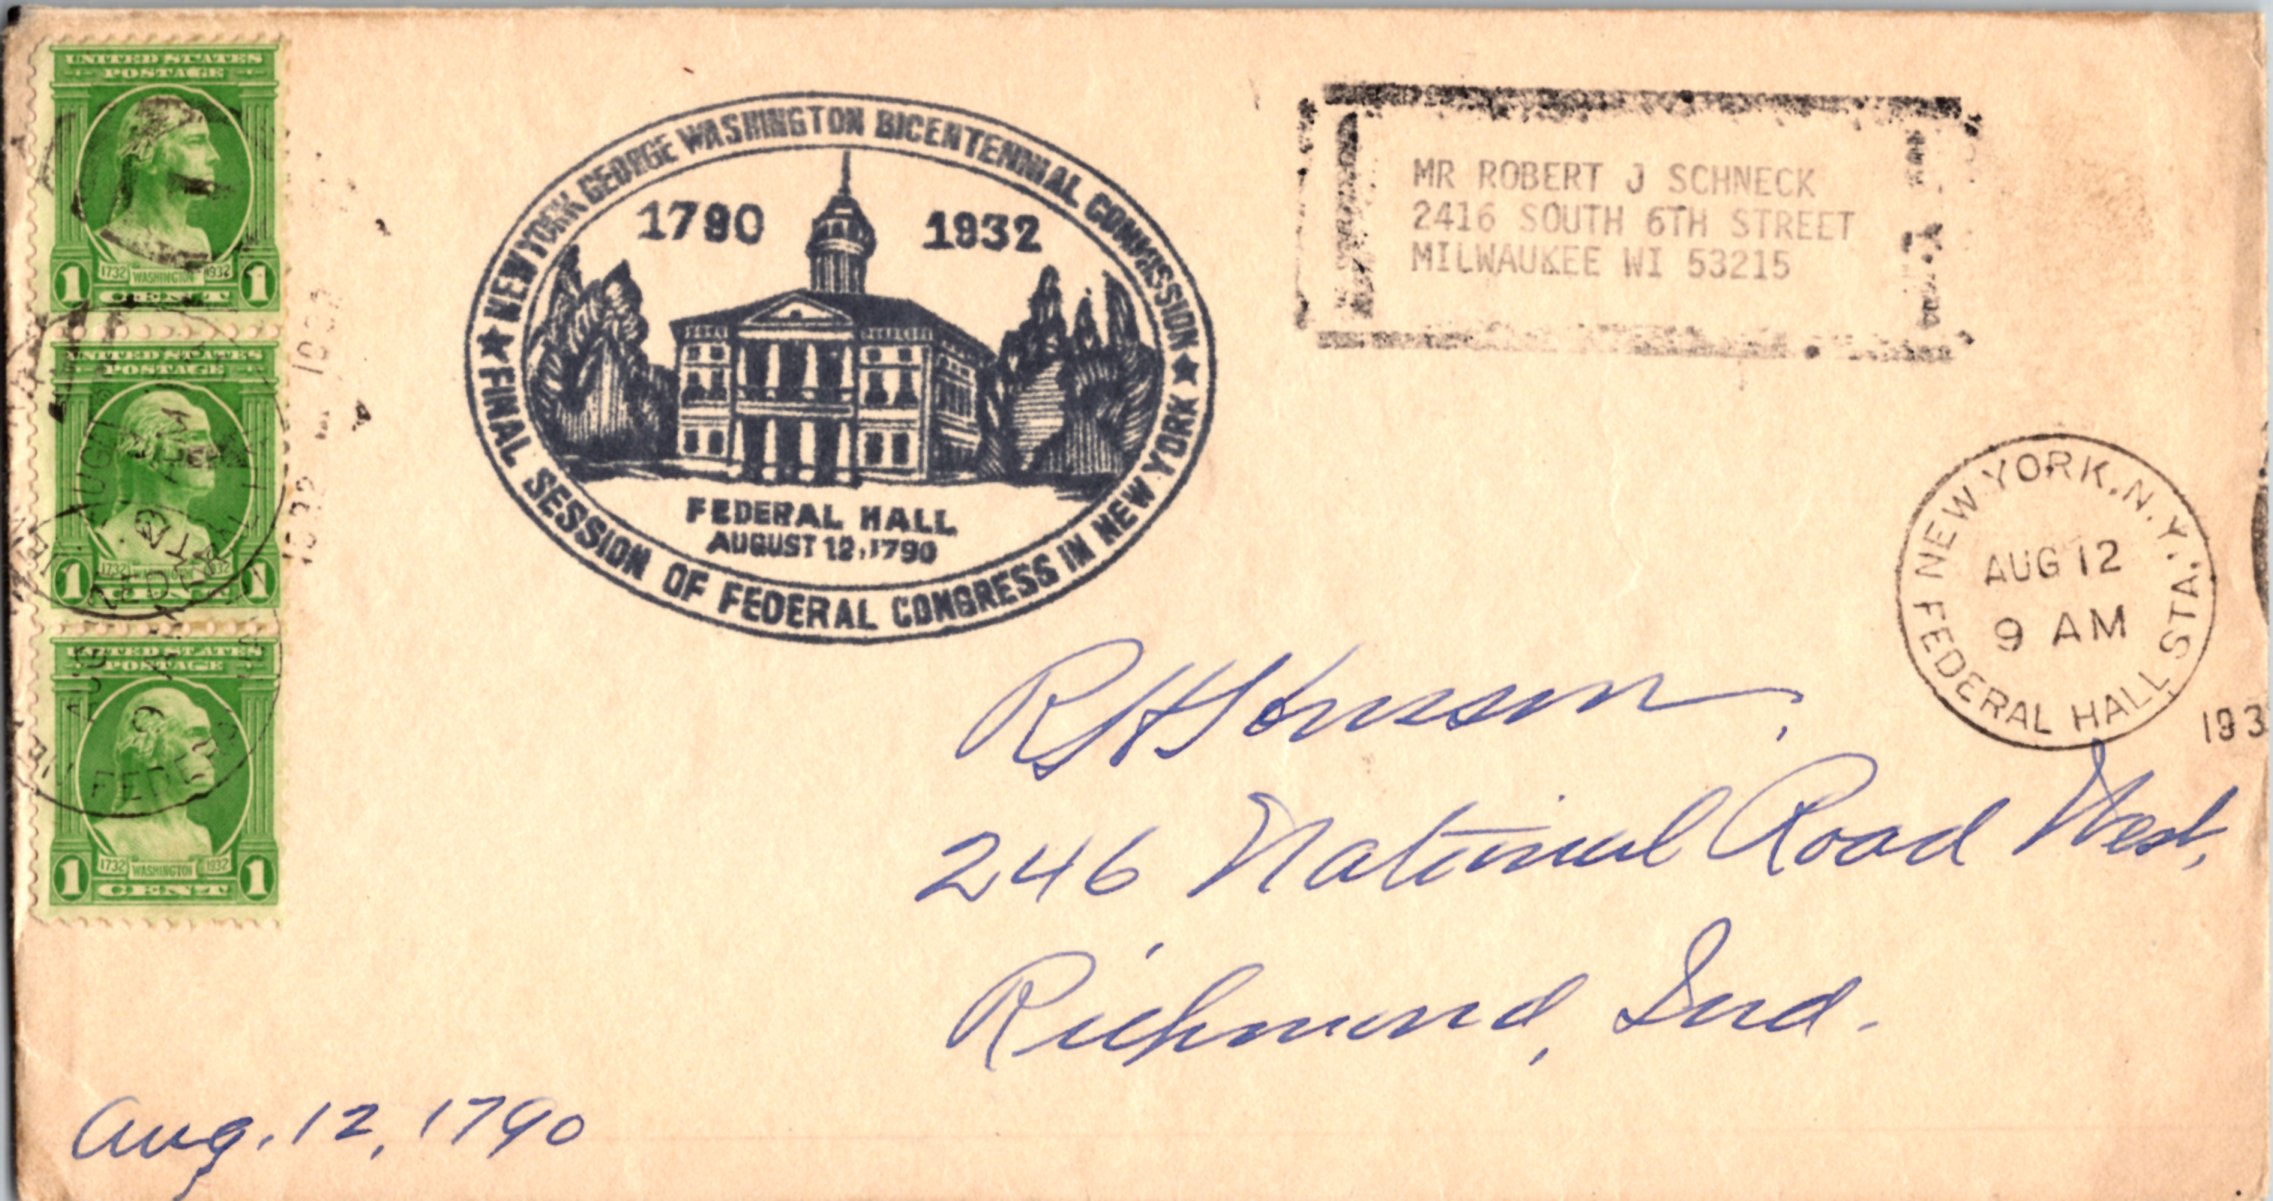 UNITED STATES
POSTAGE
1732 WASHINGTON 1932
1 CENT 1
UNITED STATES
POSTAGE
1 CENT 1
UNITED STATES
POSTAGE
1732 WASHINGTON 1932
1 CENT 1
★ NEW YORK GEORGE WASHINGTON BICENTENNIAL COMMISSION ★
1790 1932
FEDERAL HALL
AUGUST 12, 1790
FINAL SESSION OF FEDERAL CONGRESS IN NEW YORK
MR ROBERT J SCHNECK
2416 SOUTH 6TH STREET
MILWAUKEE WI 53215
NEW YORK, N.Y.
AUG 12
9 AM
FEDERAL HALL STA.
193
246 National Road West,
Richmond, Ind.
Aug. 12, 1790